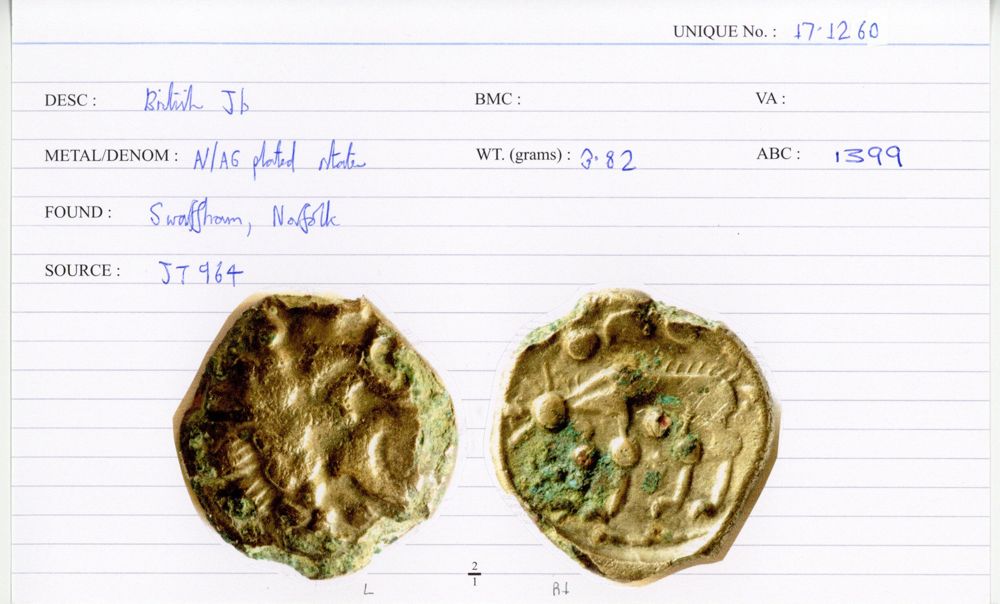 UNIQUE No. : 17.1260
DESC : British Jb BMC : VA :
METAL/DENOM : N/AG plated stater WT. (grams) : 3.82 ABC : 1399
FOUND : Swaffham, Norfolk
SOURCE : JT 964
2
1
L R↓